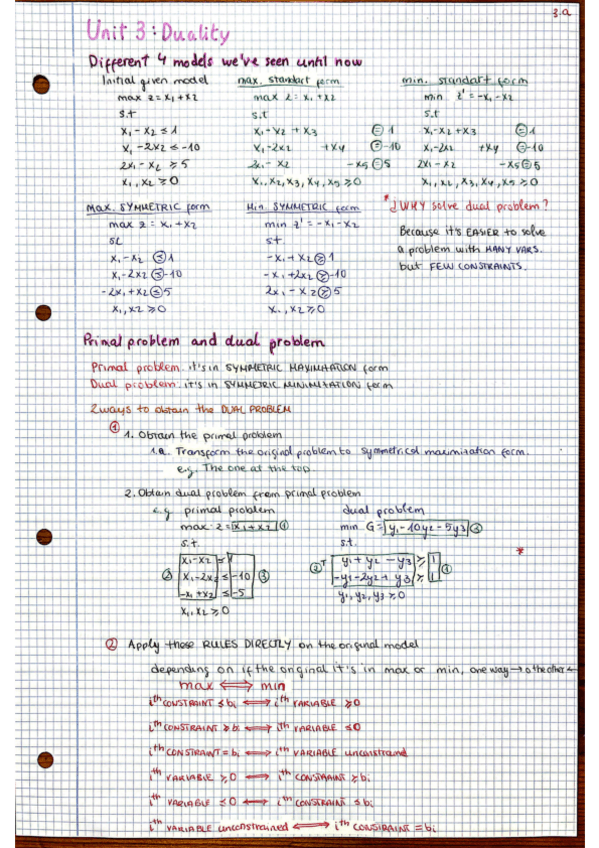 3.a
Unit 3: Duality
Different 4 models we've seen until now
Initial given model
max z = x₁ + x₂
s.t
x₁ - x₂ ≤ 1
x₁ - 2x₂ ≤ -10
2x₁ - x₂ ≥ 5
x₁, x₂ ≥ 0
max. standart form
max z: x₁ + x₂
s.t.
x₁ - x₂ + x₃ = 1
x₁ - 2x₂ + x₄ = -10
2x₁ - x₂ - x₅ = 5
x₁, x₂, x₃, x₄, x₅ ≥ 0
min. standart form
min z' = -x₁ - x₂
s.t
x₁ - x₂ + x₃ = 1
x₁ - 2x₂ + x₄ = -10
2x₁ - x₂ - x₅ = 5
x₁, x₂, x₃, x₄, x₅ ≥ 0
max. SYMMETRIC form
max z = x₁ + x₂
st
x₁ - x₂ ≤ 1
x₁ - 2x₂ ≤ -10
-2x₁ + x₂ ≤ 5
x₁, x₂ ≥ 0
Min. SYMMETRIC form
min z' = -x₁ - x₂
st.
-x₁ + x₂ ≥ 1
-x₁ + 2x₂ ≥ -10
2x₁ - x₂ ≥ 5
x₁, x₂ ≥ 0
*¿WHY solve dual problem?
Because it's EASIER to solve
a problem with MANY VARS.
but FEW CONSTRAINTS.
Primal problem and dual problem
Primal problem: it's in SYMMETRIC MAXIMITATION form
Dual problem: it's in SYMMETRIC MINIMITATION form
2 ways to obtain the DUAL PROBLEM
① 1. Obtain the primal problem
1.a. Transform the original problem to symmetrical maximization form.
e.g. The one at the top.
2. Obtain dual problem from primal problem
e.g. primal problem
max z = x₁ + x₂ ①
s.t.
x₁ - x₂ ≤ 1
② x₁ - 2x₂ ≤ -10 ③
-x₁ + x₂ ≤ -5
x₁, x₂ ≥ 0
dual problem
min G = y₁ - 10y₂ - 5y₃ ③
s.t.
②ᵀ y₁ + y₂ - y₃ ≥ 1
-y₁ - 2y₂ + y₃ ≥ 1 ①
y₁, y₂, y₃ ≥ 0
*
② Apply these RULES DIRECTLY on the original model
depending on if the original it's in max or min, one way → o the other ←
max ⟺ min
iᵗʰ CONSTRAINT ≤ bi ⟷ iᵗʰ VARIABLE ≥ 0
iᵗʰ CONSTRAINT ≥ bi ⟷ iᵗʰ VARIABLE ≤ 0
iᵗʰ CONSTRAINT = bi ⟷ iᵗʰ VARIABLE unconstrained
iᵗʰ VARIABLE ≥ 0 ⟷ iᵗʰ CONSTRAINT ≥ bi
iᵗʰ VARIABLE ≤ 0 ⟷ iᵗʰ CONSTRAINT ≤ bi
iᵗʰ VARIABLE unconstrained ⟷ iᵗʰ CONSTRAINT = bi